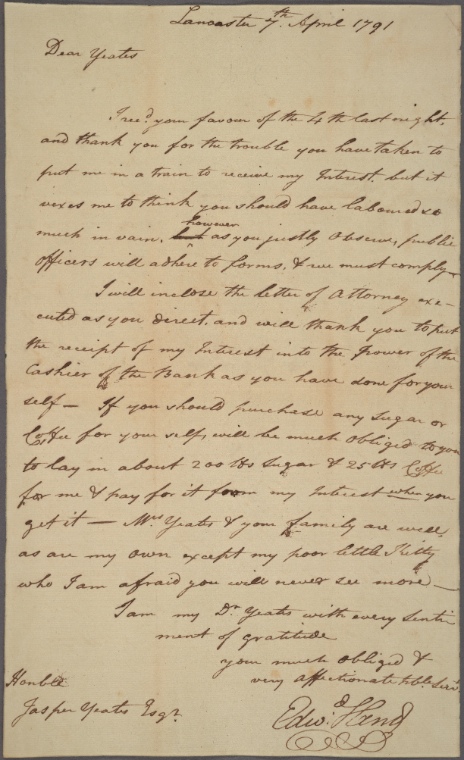 Lancaster 7th. April 1791
Dear Yeates
I recd. your favour of the 4th last night,
and thank you for the trouble you have taken to
put me in a train to receive my Interest, but it
vexes me to think you should have laboured so
much in vain, however as you justly Observe, public
officers will adhere to forms, & we must comply—
I will inclose the letter of Attorney exe-
cuted as you direct, and will thank you to put
the receipt of my Interest into the Power of the
Cashier of the Bank as you have done for your
self — If you should purchase any Sugar or
Coffee for your self, will be much obliged to you
to lay in about 200 lbs Sugar & 25 lbs Coffee
for me & pay for it from my Interest when you
get it — Mrs Yeates & your family are well,
as are my own except my poor little Kitty
who I am afraid you will never see more —
I am my Dr. Yeates with every Senti
ment of gratitude
your much obliged &
very affectionate hble. Servt.
Edwd. Hand
Honble
Jasper Yeates Esqr.